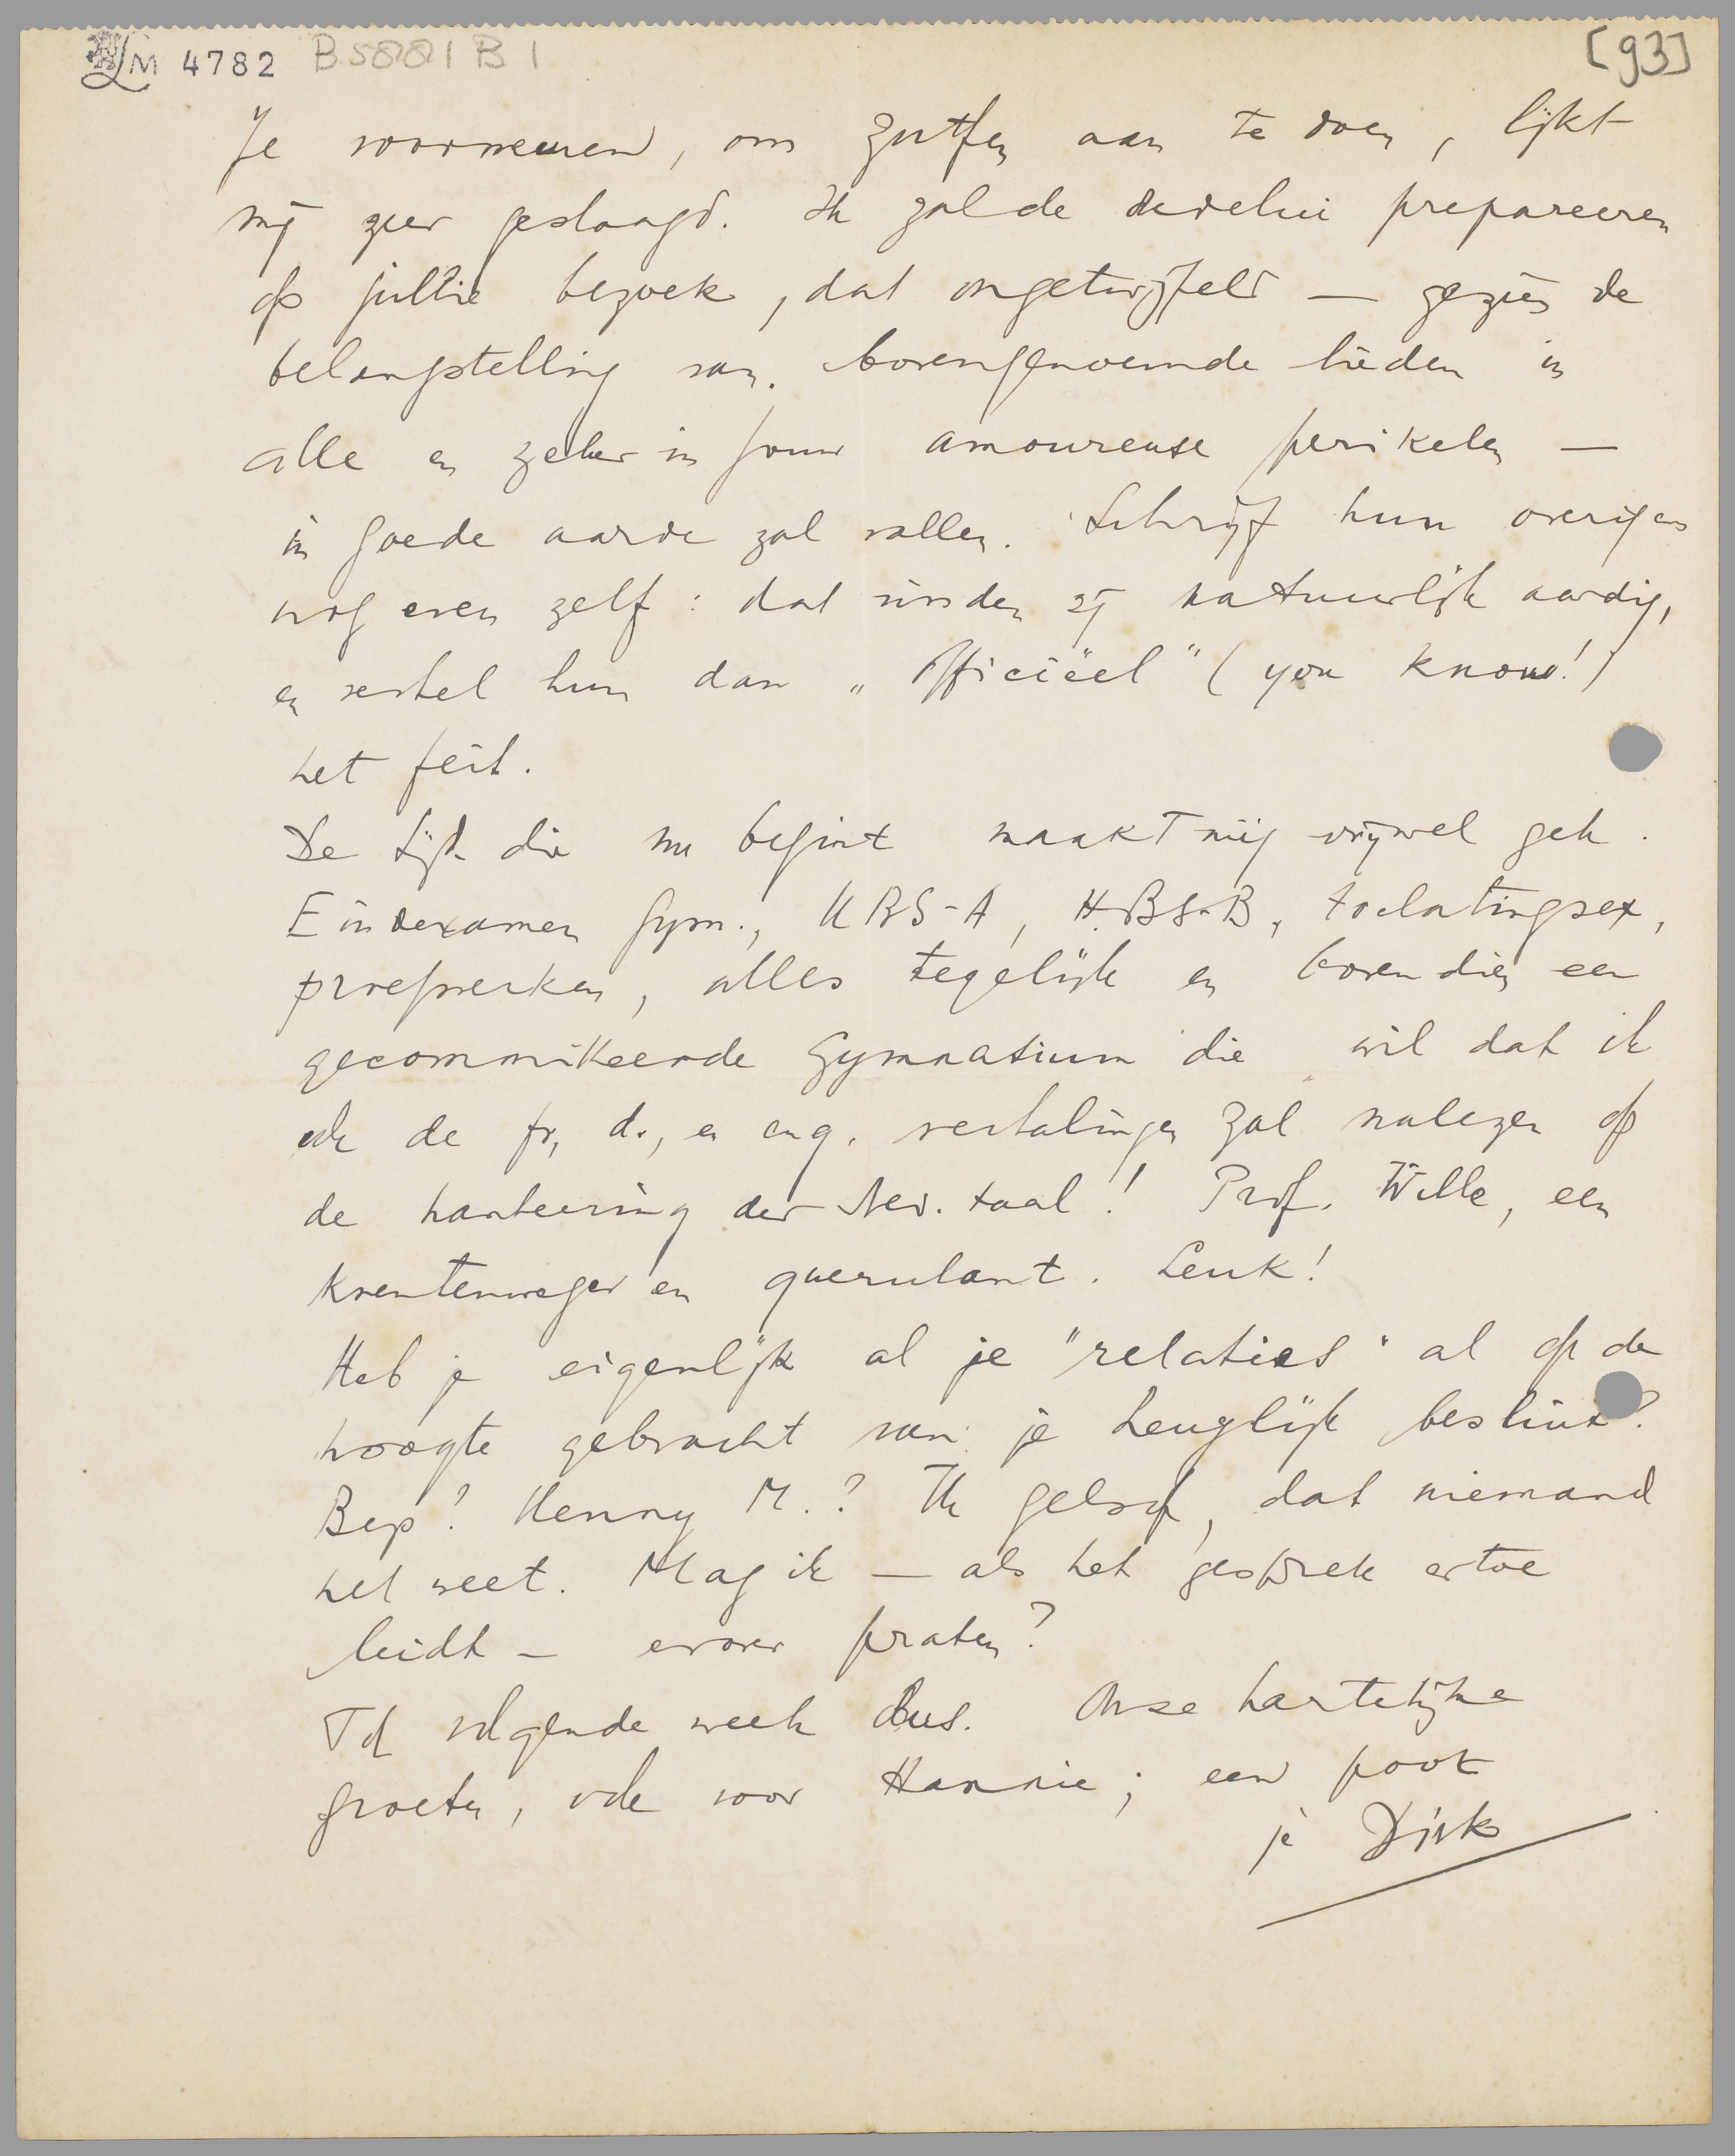 LM 4782 B5001 B 1 [93]
Je voornemen, om Zutfen aan te doen, lijkt
mij zeer geslaagd. Ik zal de oudelui prepareeren
op jullie bezoek, dat ongetwijfeld — gezien de
belangstelling van bovengenoemde lieden in
alle en zeker in jouw amoureuse perikelen —
in goede aarde zal vallen. Schrijf hun overigens
nog even zelf: dat vinden zij natuurlijk aardig,
en vertel hun dan „officiëel" (you know!)
het feit.
De tijd die nu begint maakt mij vrijwel gek.
Eindexamen Gym., HBS-A, H.BS-B, toelatingsex,
proefwerken, alles tegelijk en bovendien een
gecommitteerde Gymnasium die wil dat ik
ook de fr, d., en eng. vertalingen zal nalezen op
de hanteering der Ned. taal! Prof. Wille, een
krentenweger en querulant. Leuk!
Heb je eigenlijk al je "relaties" al op de
hoogte gebracht van je heuglijk besluit?
Bep? Henny M.? Ik geloof, dat niemand
het weet. Mag ik — als het gesprek ertoe
leidt — erover praten?
Tot volgende week dus. Onze hartelijke
groeten, ook voor Hannie; een poot
je Dirk